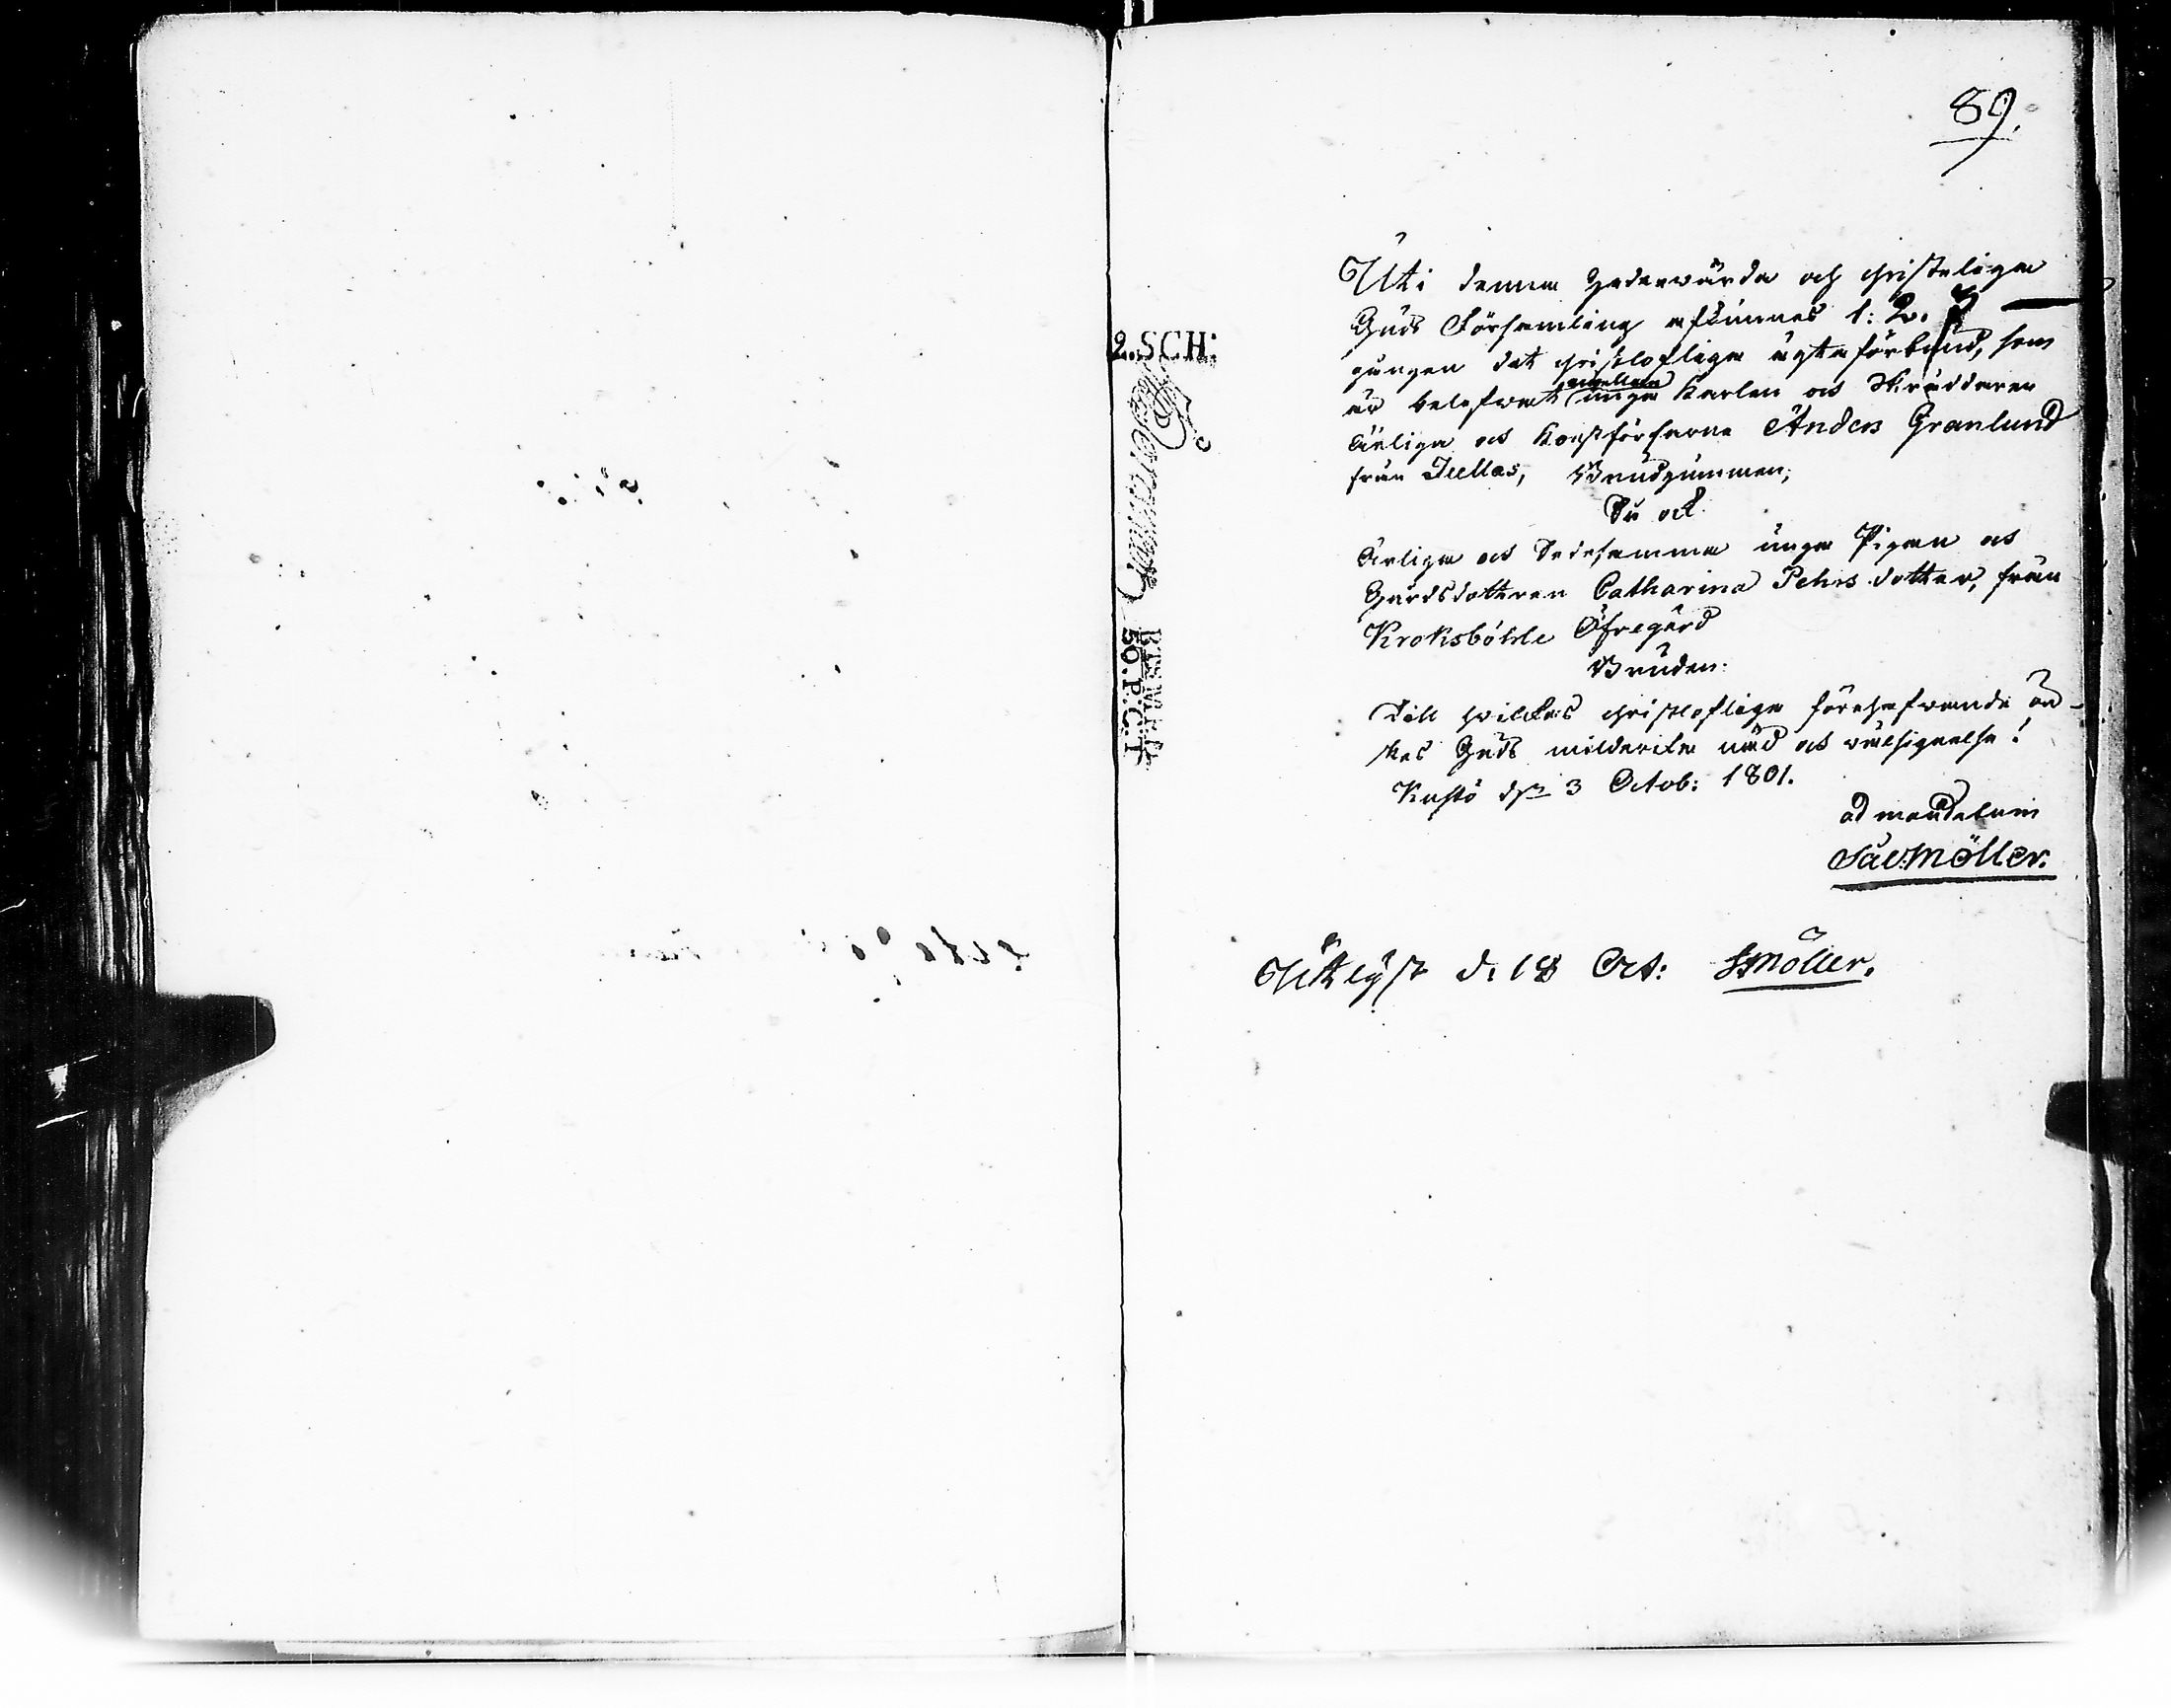 89.
Uti denna hedervärda och christeliga
Guds Församling afkunnas 1: 2.
gången det christloflige ägta förbund, som
är belefwat emellan unge Karlen och Skräddaren
Ärlige och Konstförfarne Anders Granlund
från Tellas, Brudgummen;
Så ock
Ärliga och Sedesamma unga Pigan och
Gårdsdotteren Catharina Pehrs dotter, från
Kroksböhle Öfregård
Bruden.
Till hvilkas christloflige förehafwande ön-
skas Guds milderika nåd och wälsignelse!
Kustö d. 3 Octob: 1801.
ad mandatum
Sac. Möller.
Utlyst d. 18 Oct: Möller.
2.SCH:
50.P.C.T